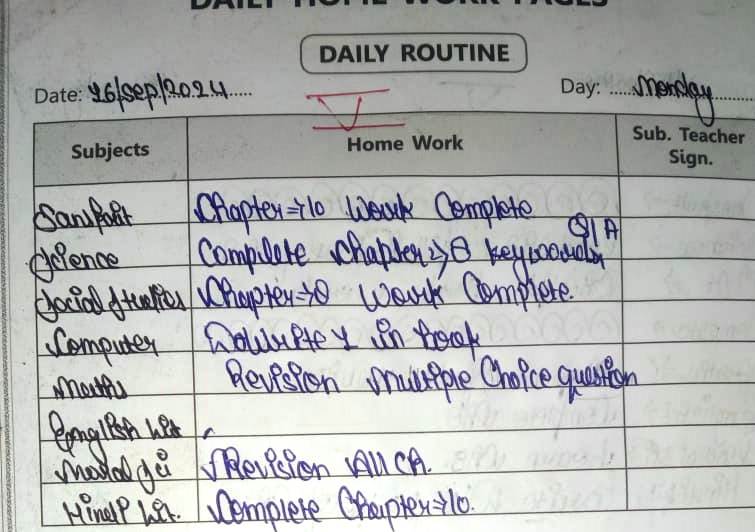 DAILY HOME WORK PAGES
DAILY ROUTINE
Date: 26/Sep/2024 Day: Monday
V
Subjects Home Work Sub. Teacher Sign.
Sanskrit Chapter⇒10 Work Complete
Science Complete Chapter⇒8 keywords Q/A
Social Studies Chapter⇒8 Work Complete.
Computer in book
Maths Revision Multiple Choice question
English Lit
Moral Sci Revision All CH.
Hindi Lit. Complete Chapter⇒10.